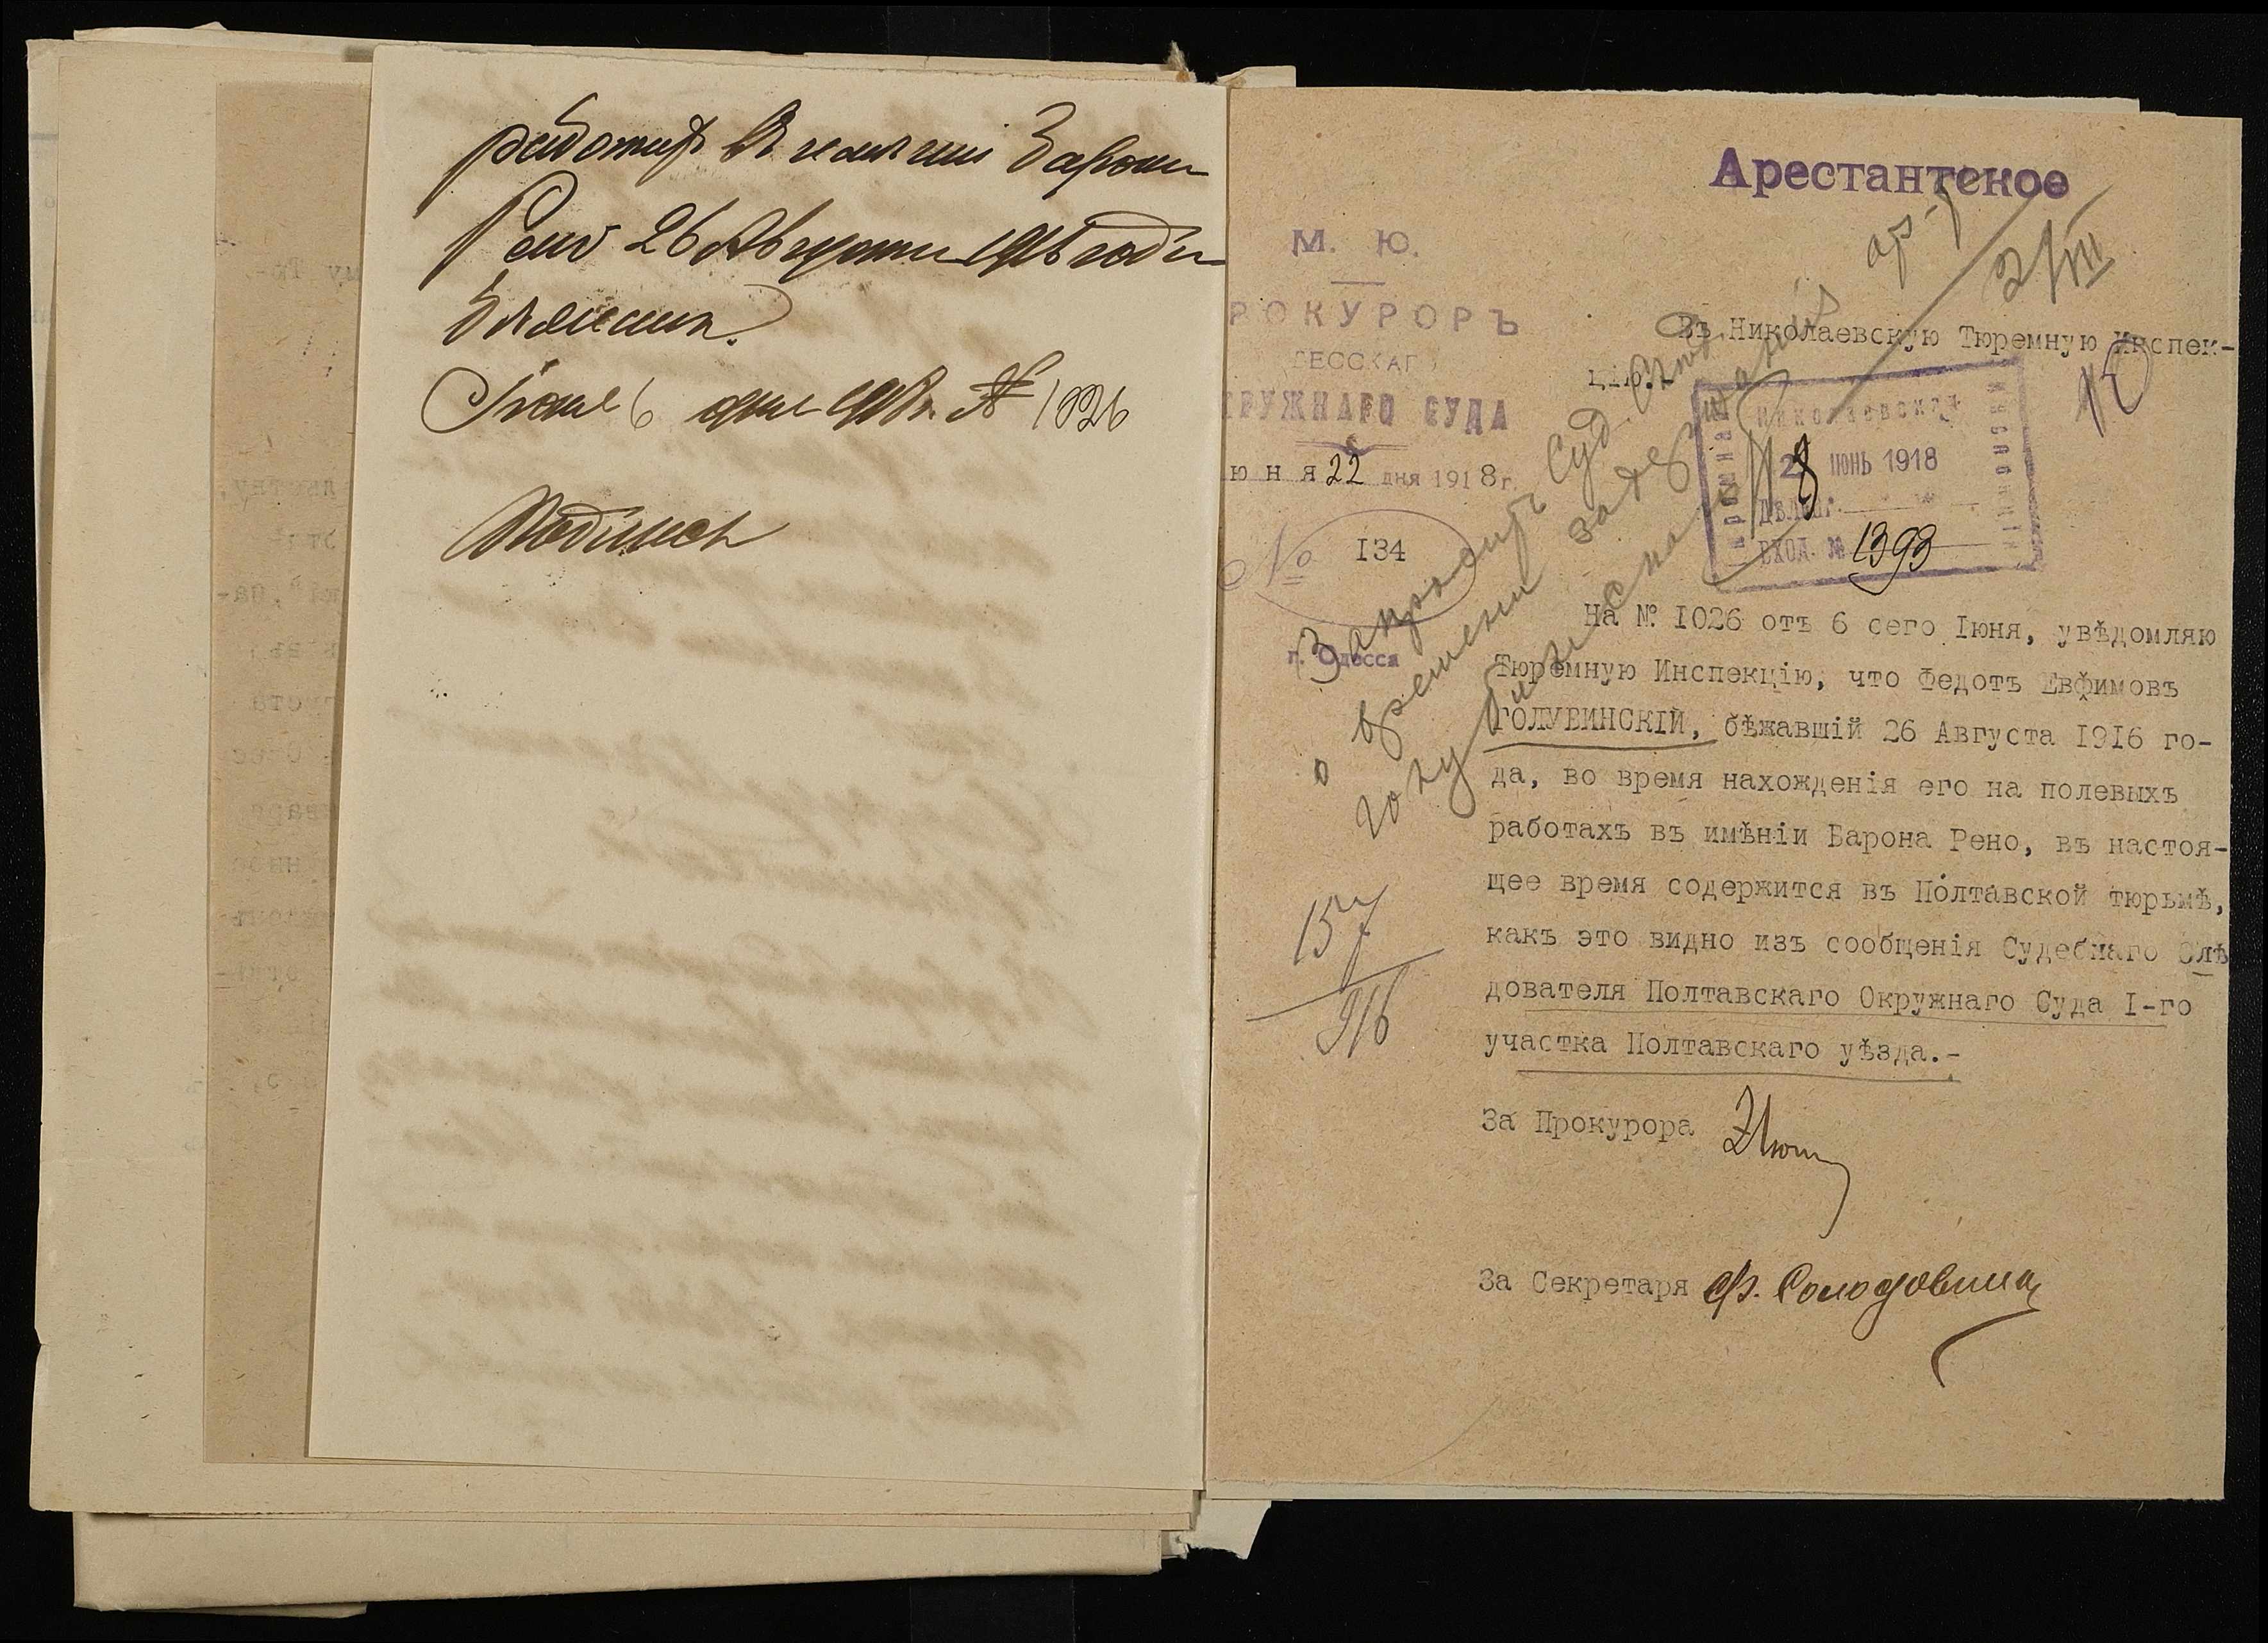 работах в имении Барона
Рено 26 Августа 1916 года
Бежавший.
Июня 6 дня 1918 г. № 1026
Подписал
Арестантское
М. Ю.
РОКУРОРЪ
ДЕССКАГ
РУЖНАГО СУДА
юня 22 дня 1918 г.
№ 134
г. Одесса
Въ Николаевскую Тюремную Инспек-
цію.
Николаевская
2 8 ІЮНЬ 1918
ВХОД. № 1393
2/VII
Запросить Суд. Слѣд.
о времени задержанія ар-
157
916
На № 1026 отъ 6 сего Іюня, увѣдомляю
Тюремную Инспекцію, что Федотъ Евфимовъ
ГОЛУБИНСКІЙ, бѣжавшій 26 Августа 1916 го-
да, во время нахожденія его на полевыхъ
работахъ въ имѣніи Барона Рено, въ настоя-
щее время содержится въ Полтавской тюрьмѣ,
какъ это видно изъ сообщенія Судебнаго Слѣ
дователя Полтавскаго Окружнаго Суда I-го
участка Полтавскаго уѣзда.-
За Прокурора
За Секретаря